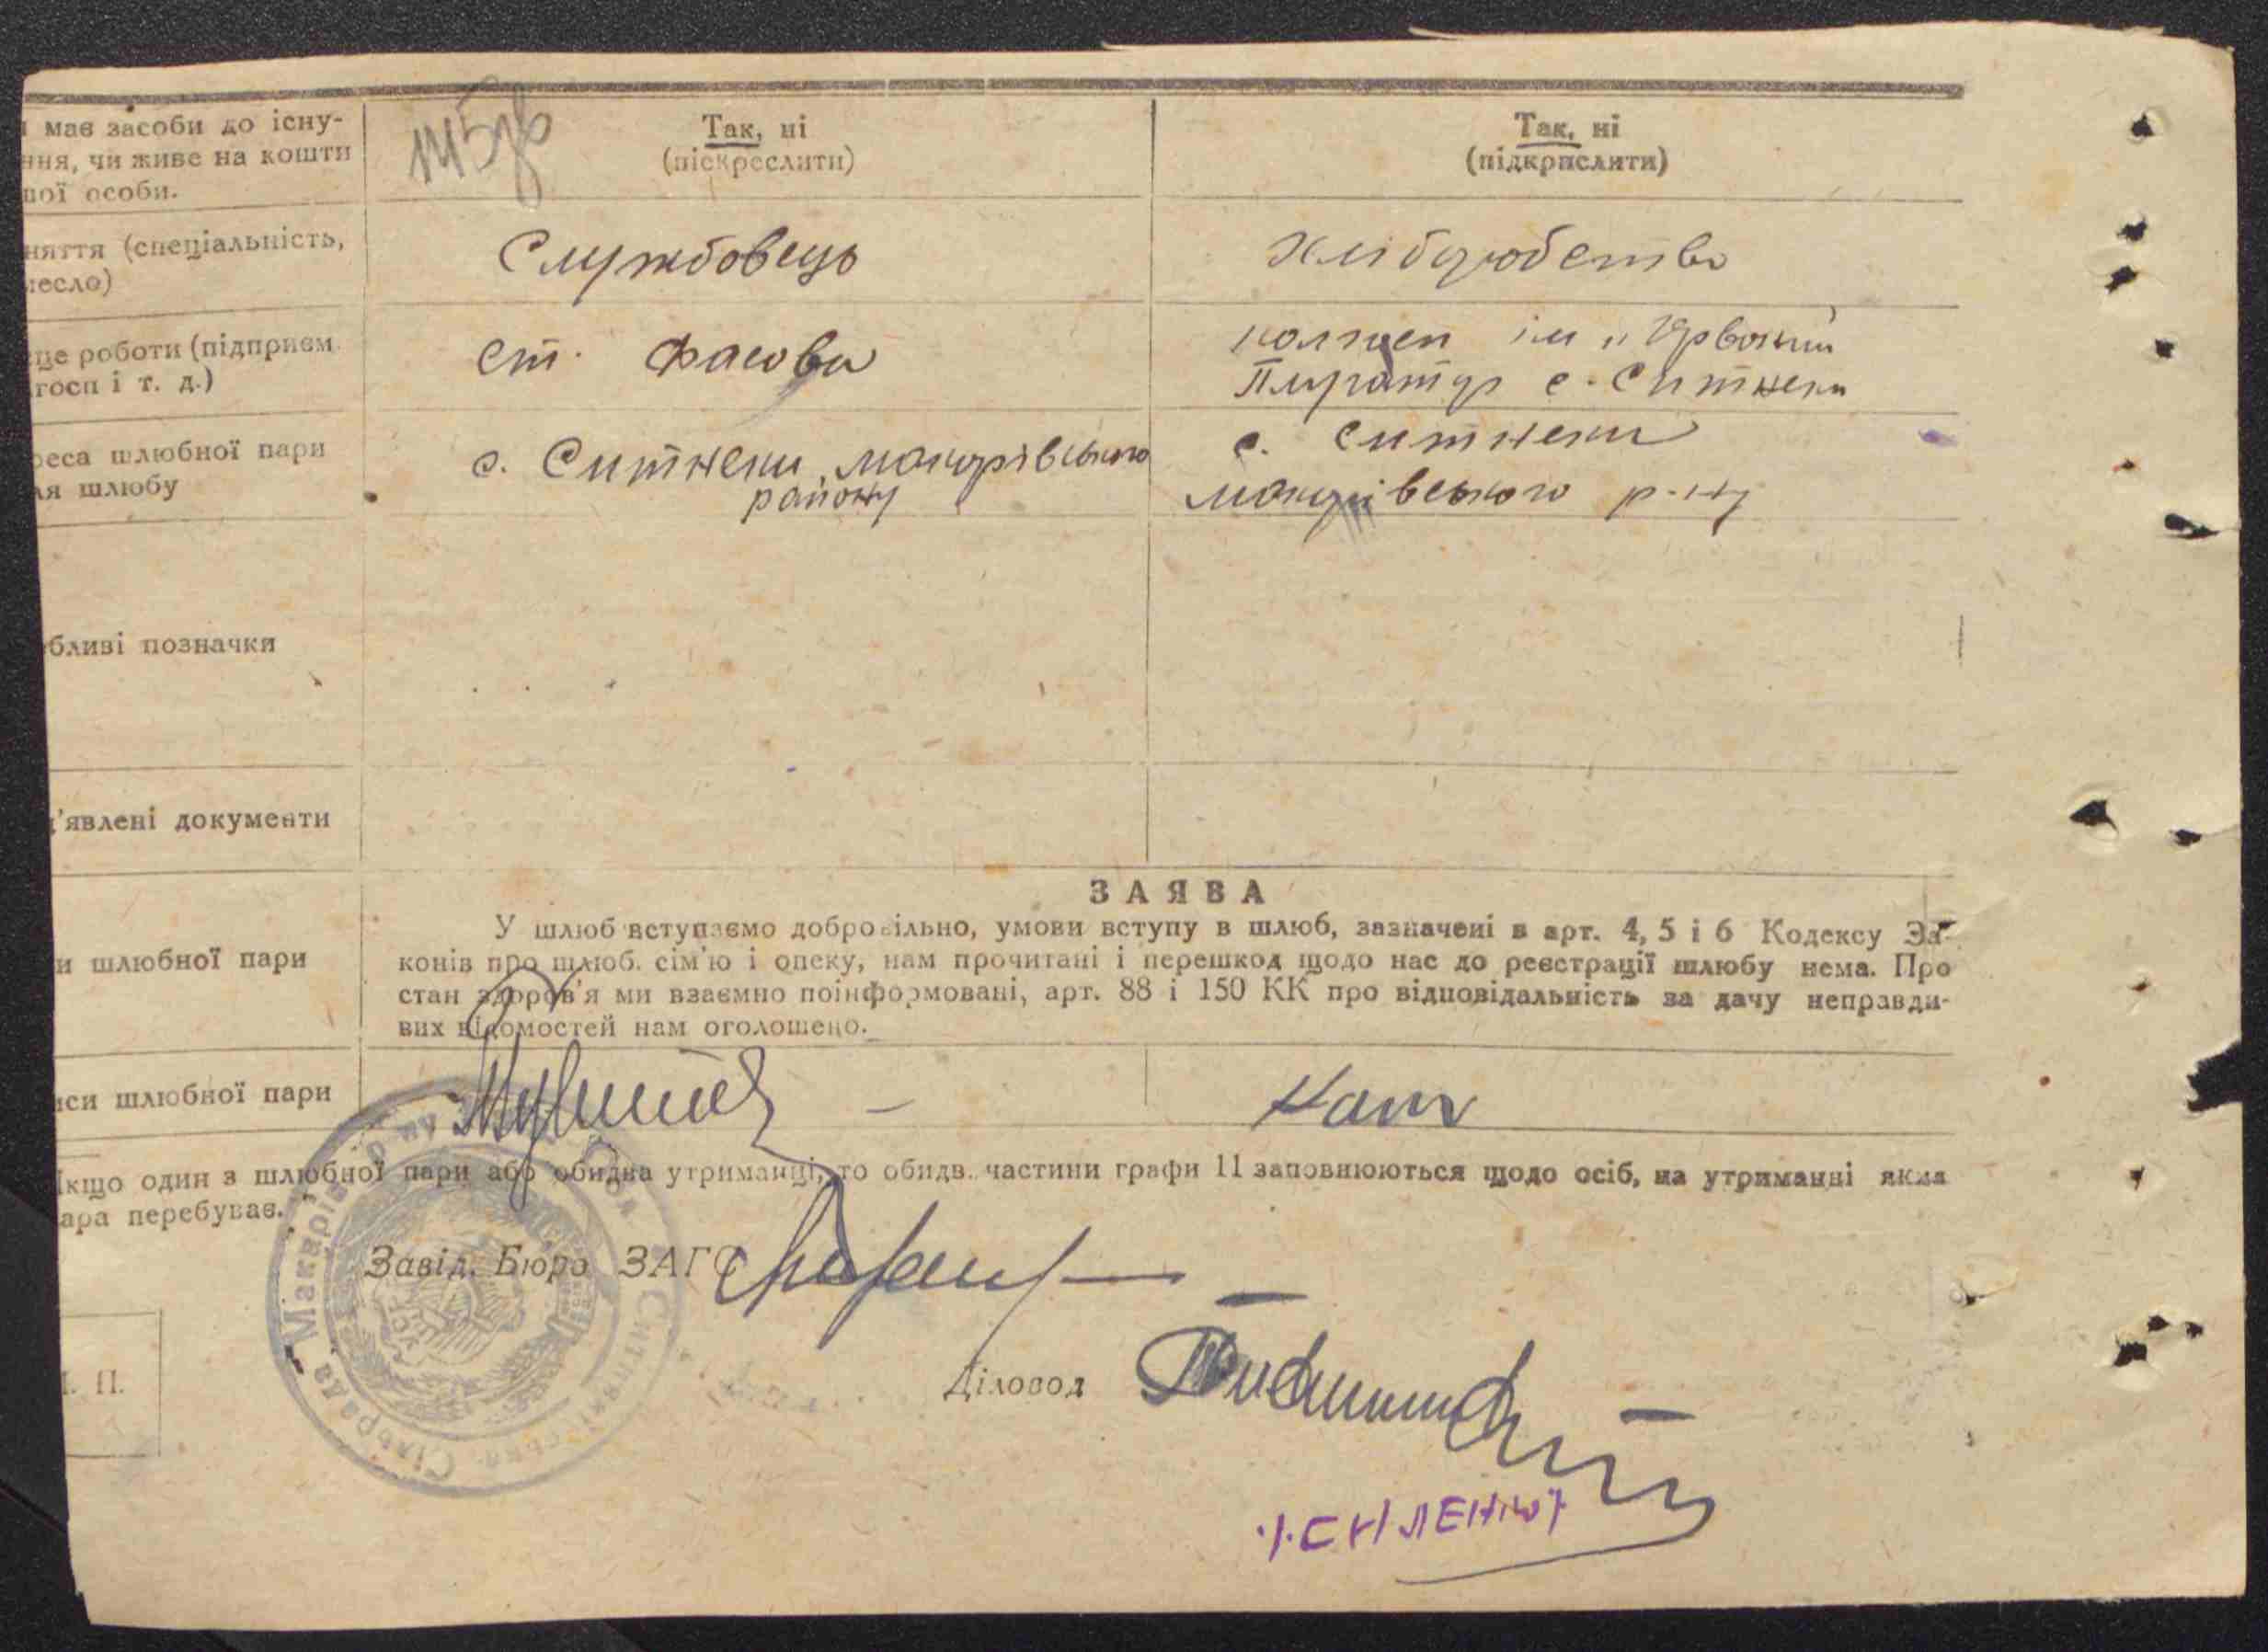 має засоби до існу-
ння, чи живе на кошти
шої особи.
Так, ні
(піскреслити)
Так, ні
(підкрислити)
няття (спеціальність,
месло)
Службовець
Хліборобство
це роботи (підприєм.
госп і т. д.)
ст. Фасова
колгосп ім „Червоний
Плугатар с. Ситняки
реса шлюбної пари
ля шлюбу
с. Ситняки, Макарівського
району
с. Ситняки
Макарівського р-ну
бливі позначки
'явлені документи
ЗАЯВА
и шлюбної пари
У шлюб вступаємо добровільно, умови вступу в шлюб, зазначені в арт. 4, 5 і 6 Кодексу За-
конів про шлюб. сім'ю і опеку, нам прочитані і перешкод щодо нас до реєстрації шлюбу нема. Про
стан здоров'я ми взаємно поінформовані, арт. 88 і 150 КК про відповідальність за дачу неправди-
вих відомостей нам оголошено.
иси шлюбної пари
Якщо один з шлюбної пари або обидва утриманці, то обидв. частини графи 11 заповнюються щодо осіб, на утриманні яких
ара перебуває.
Завід. Бюро ЗАГС
Діловод
П.
Ситняківська Сільрада Макарів р-ну